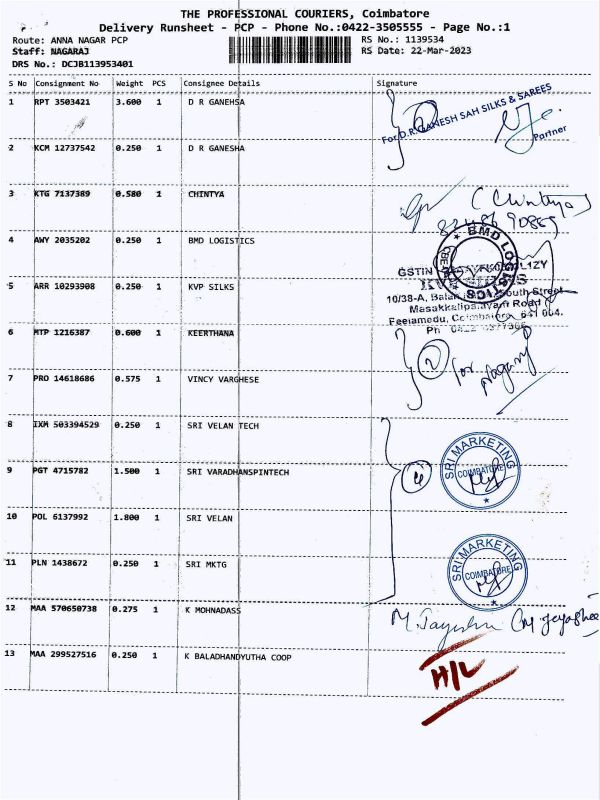 THE PROFESSIONAL COURIERS, Coimbatore
Delivery Runsheet - PCP - Phone No.:0422-3505555 - Page No.:1
Route: ANNA NAGAR PCP RS No.: 1139534
Staff: NAGARAJ RS Date: 22-Mar-2023
DRS No.: DCJB113953401
S No Consignment No Weight PCS Consignee Details Signature
1 RPT 3503421 3.600 1 D R GANEHSA
For D.R. GANESH SAH SILKS & SAREES
Partner
2 KCM 12737542 0.250 1 D R GANESHA
3 KTG 7137389 0.580 1 CHINTYA
(Chintya)
4 AWY 2035202 0.250 1 BMD LOGISTICS
BMD LOGISTICS
GSTIN
5 ARR 10293908 0.250 1 KVP SILKS
10/38-A, South Street
Masakkalipalayam Road
Peelamedu, Coimbatore, 641 004.
Ph
6 MTP 1216387 0.600 1 KEERTHANA
2 for Nagaraj
7 PRO 14618686 0.575 1 VINCY VARGHESE
8 IXM 503394529 0.250 1 SRI VELAN TECH
SRI MARKETING
COIMBATORE
9 PGT 4715782 1.500 1 SRI VARADHANSPINTECH
4
10 POL 6137992 1.800 1 SRI VELAN
11 PLN 1438672 0.250 1 SRI MKTG
SRI MARKETING
COIMBATORE
12 MAA 570650738 0.275 1 K MOHNADASS
13 MAA 299527516 0.250 1 K BALADHANDYUTHA COOP
H/L